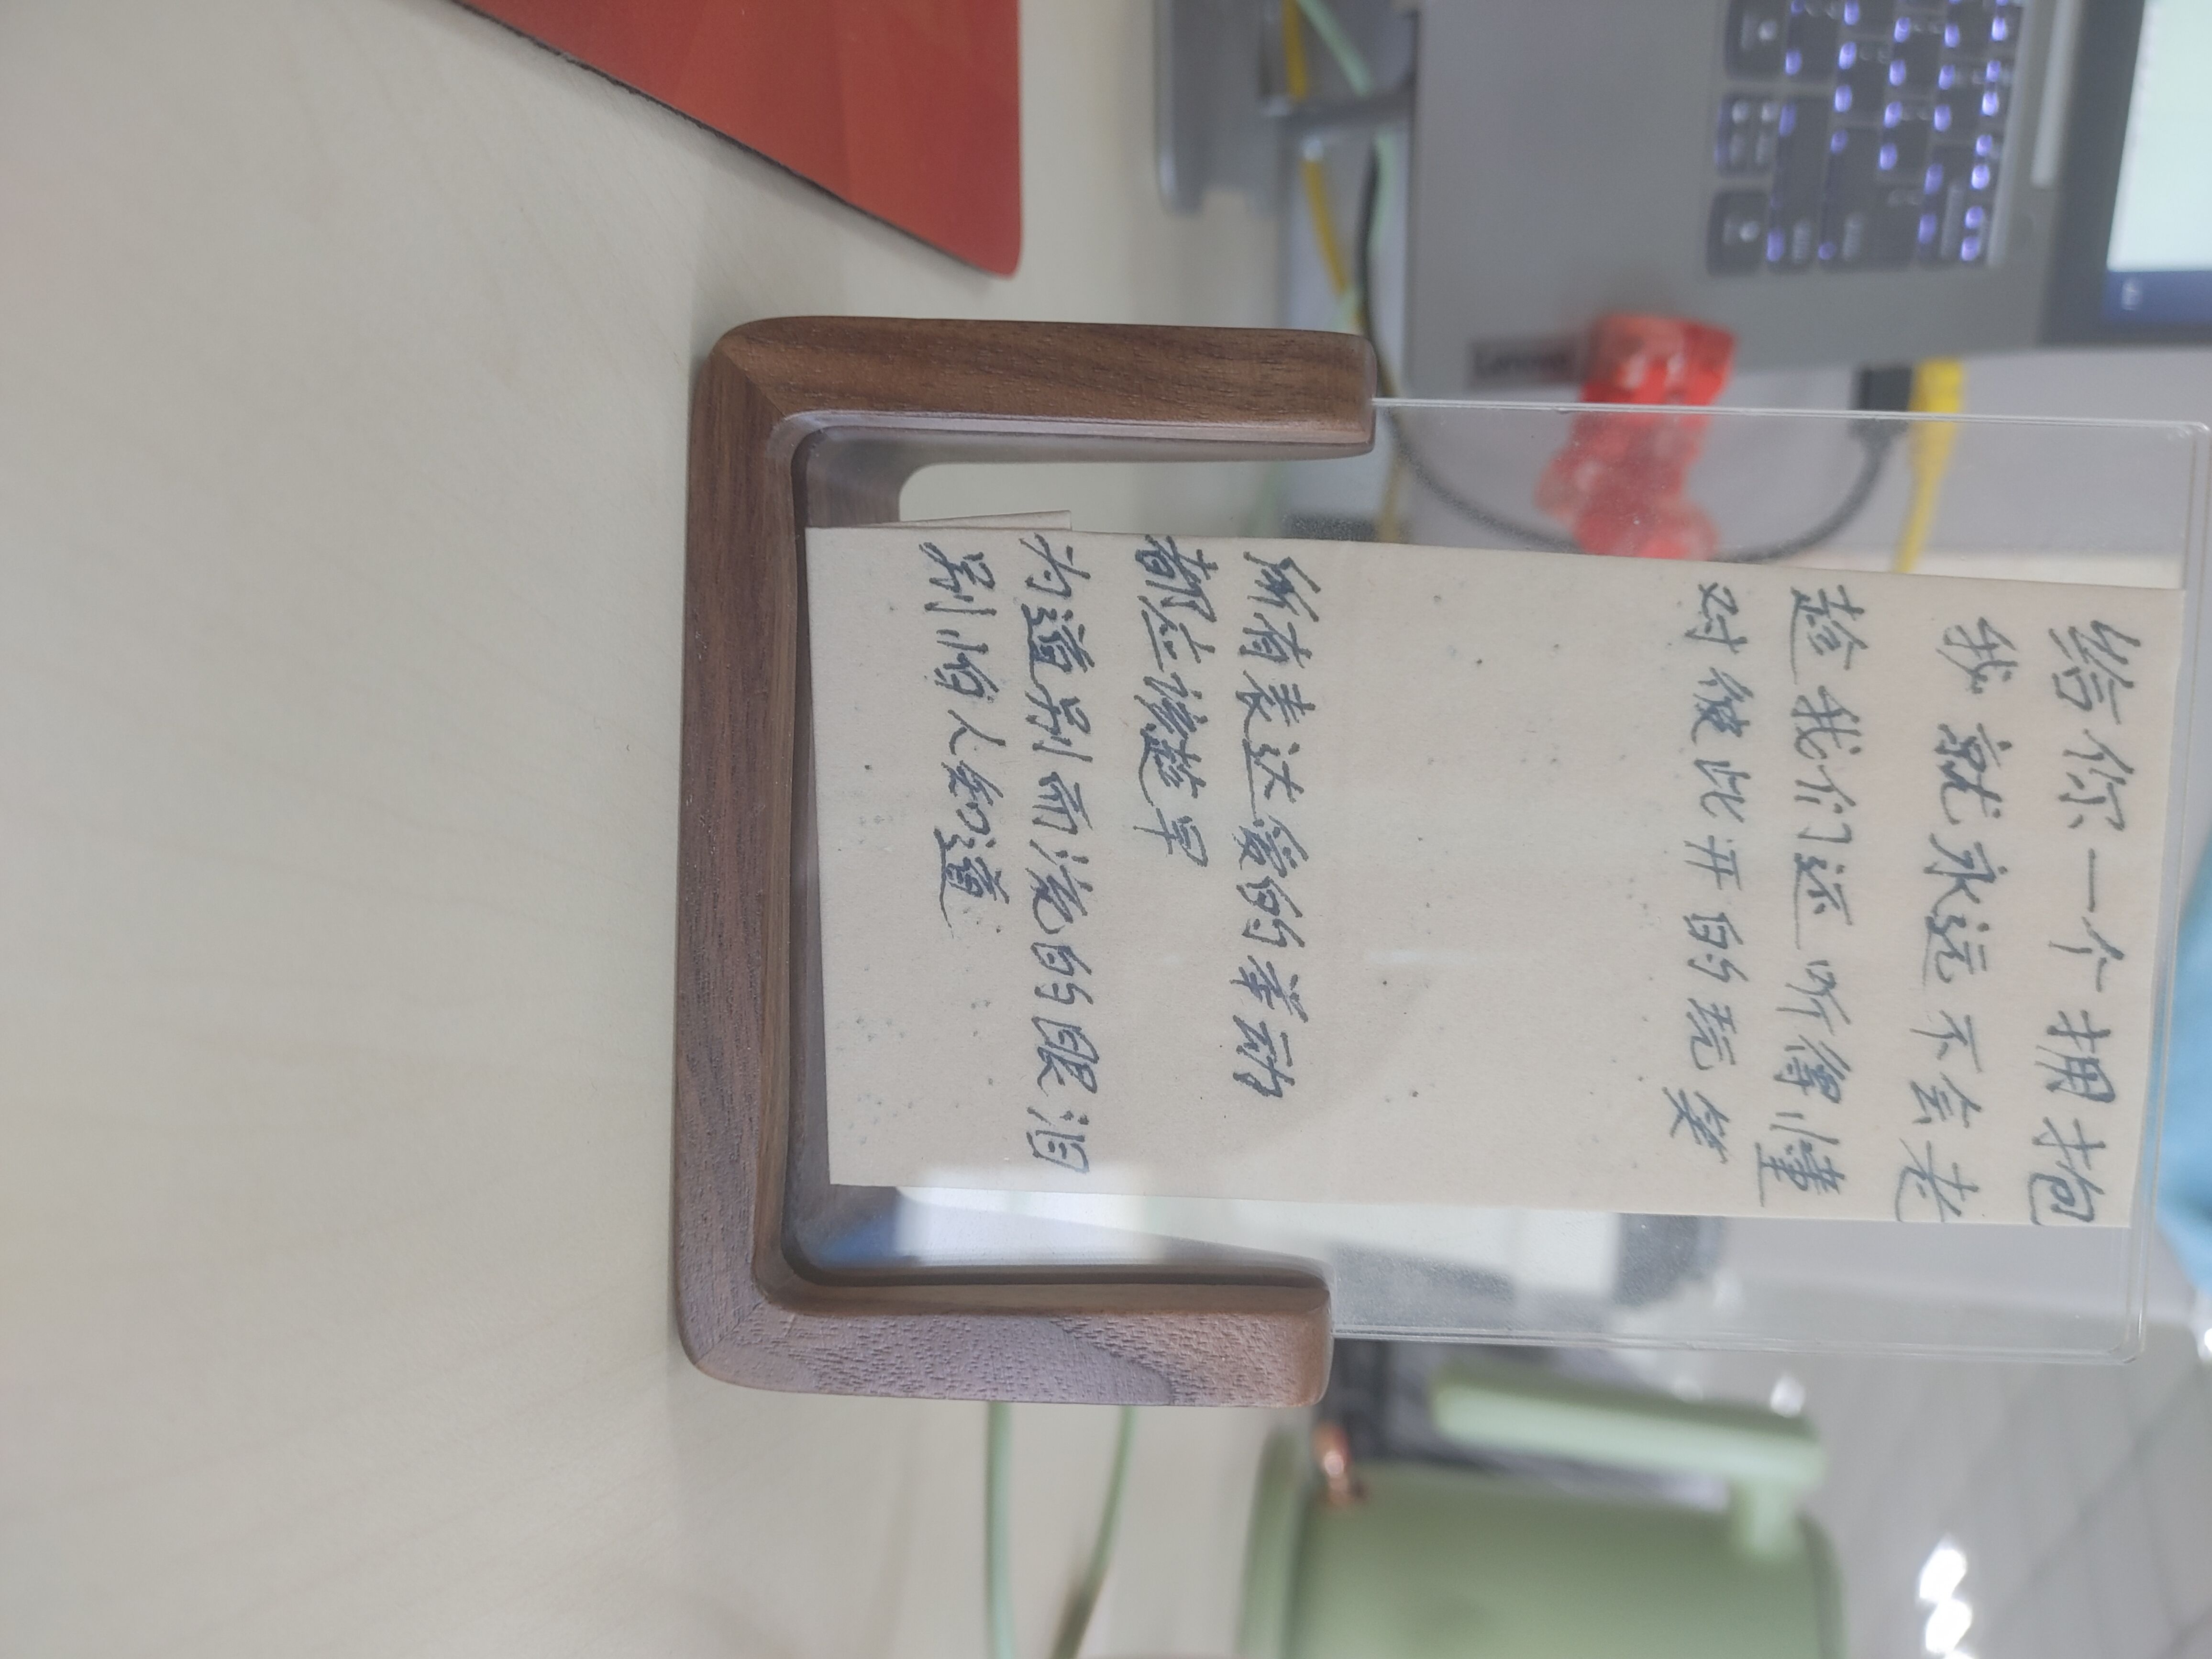 给你一个拥抱
我就永远不会老
趁我们还听得懂
对彼此开的玩笑
所有表达爱的举动
都应该趁早
为道别而流的眼泪
别怕人知道